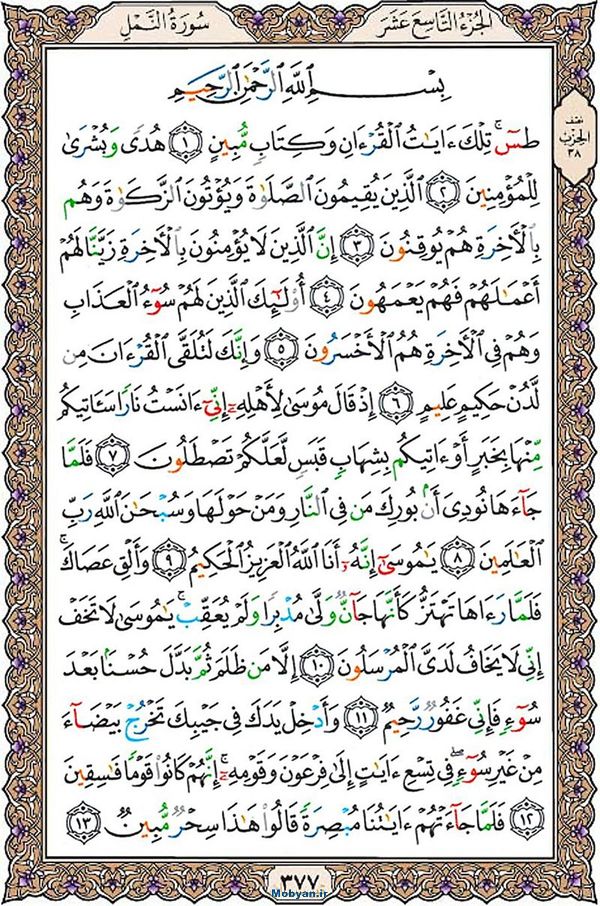 سُورَةُ النَّمْلِ
الجُزْءُ التَّاسِعَ عَشَرَ
نصف
الحزب
٣٨
بِسْمِ ٱللَّهِ ٱلرَّحْمَٰنِ ٱلرَّحِيمِ
طسٓۚ تِلْكَ ءَايَٰتُ ٱلْقُرْءَانِ وَكِتَابٍ مُّبِينٍ ١ هُدًى وَبُشْرَىٰ
لِلْمُؤْمِنِينَ ٢ ٱلَّذِينَ يُقِيمُونَ ٱلصَّلَوٰةَ وَيُؤْتُونَ ٱلزَّكَوٰةَ وَهُم
بِٱلْأَخِرَةِ هُمْ يُوقِنُونَ ٣ إِنَّ ٱلَّذِينَ لَا يُؤْمِنُونَ بِٱلْأَخِرَةِ زَيَّنَّا لَهُمْ
أَعْمَٰلَهُمْ فَهُمْ يَعْمَهُونَ ٤ أُو۟لَٰٓئِكَ ٱلَّذِينَ لَهُمْ سُوٓءُ ٱلْعَذَابِ
وَهُمْ فِى ٱلْأَخِرَةِ هُمُ ٱلْأَخْسَرُونَ ٥ وَإِنَّكَ لَتُلَقَّى ٱلْقُرْءَانَ مِن
لَّدُنْ حَكِيمٍ عَلِيمٍ ٦ إِذْ قَالَ مُوسَىٰ لِأَهْلِهِۦٓ إِنِّىٓ ءَانَسْتُ نَارًا سَـَٔاتِيكُم
مِّنْهَا بِخَبَرٍ أَوْ ءَاتِيكُم بِشِهَابٍ قَبَسٍ لَّعَلَّكُمْ تَصْطَلُونَ ٧ فَلَمَّا
جَآءَهَا نُودِىَ أَنۢ بُورِكَ مَن فِى ٱلنَّارِ وَمَنْ حَوْلَهَا وَسُبْحَٰنَ ٱللَّهِ رَبِّ
ٱلْعَٰلَمِينَ ٨ يَٰمُوسَىٰٓ إِنَّهُۥٓ أَنَا ٱللَّهُ ٱلْعَزِيزُ ٱلْحَكِيمُ ٩ وَأَلْقِ عَصَاكَۚ
فَلَمَّا رَءَاهَا تَهْتَزُّ كَأَنَّهَا جَآنٌّ وَلَّىٰ مُدْبِرًا وَلَمْ يُعَقِّبْۚ يَٰمُوسَىٰ لَا تَخَفْ
إِنِّى لَا يَخَافُ لَدَىَّ ٱلْمُرْسَلُونَ ١٠ إِلَّا مَن ظَلَمَ ثُمَّ بَدَّلَ حُسْنًۢا بَعْدَ
سُوٓءٍ فَإِنِّى غَفُورٌ رَّحِيمٌ ١١ وَأَدْخِلْ يَدَكَ فِى جَيْبِكَ تَخْرُجْ بَيْضَآءَ
مِنْ غَيْرِ سُوٓءٍۖ فِى تِسْعِ ءَايَٰتٍ إِلَىٰ فِرْعَوْنَ وَقَوْمِهِۦٓۚ إِنَّهُمْ كَانُوا۟ قَوْمًا فَٰسِقِينَ
١٢ فَلَمَّا جَآءَتْهُمْ ءَايَٰتُنَا مُبْصِرَةً قَالُوا۟ هَٰذَا سِحْرٌ مُّبِينٌ ١٣
٣٧٧
Mobyan.ir